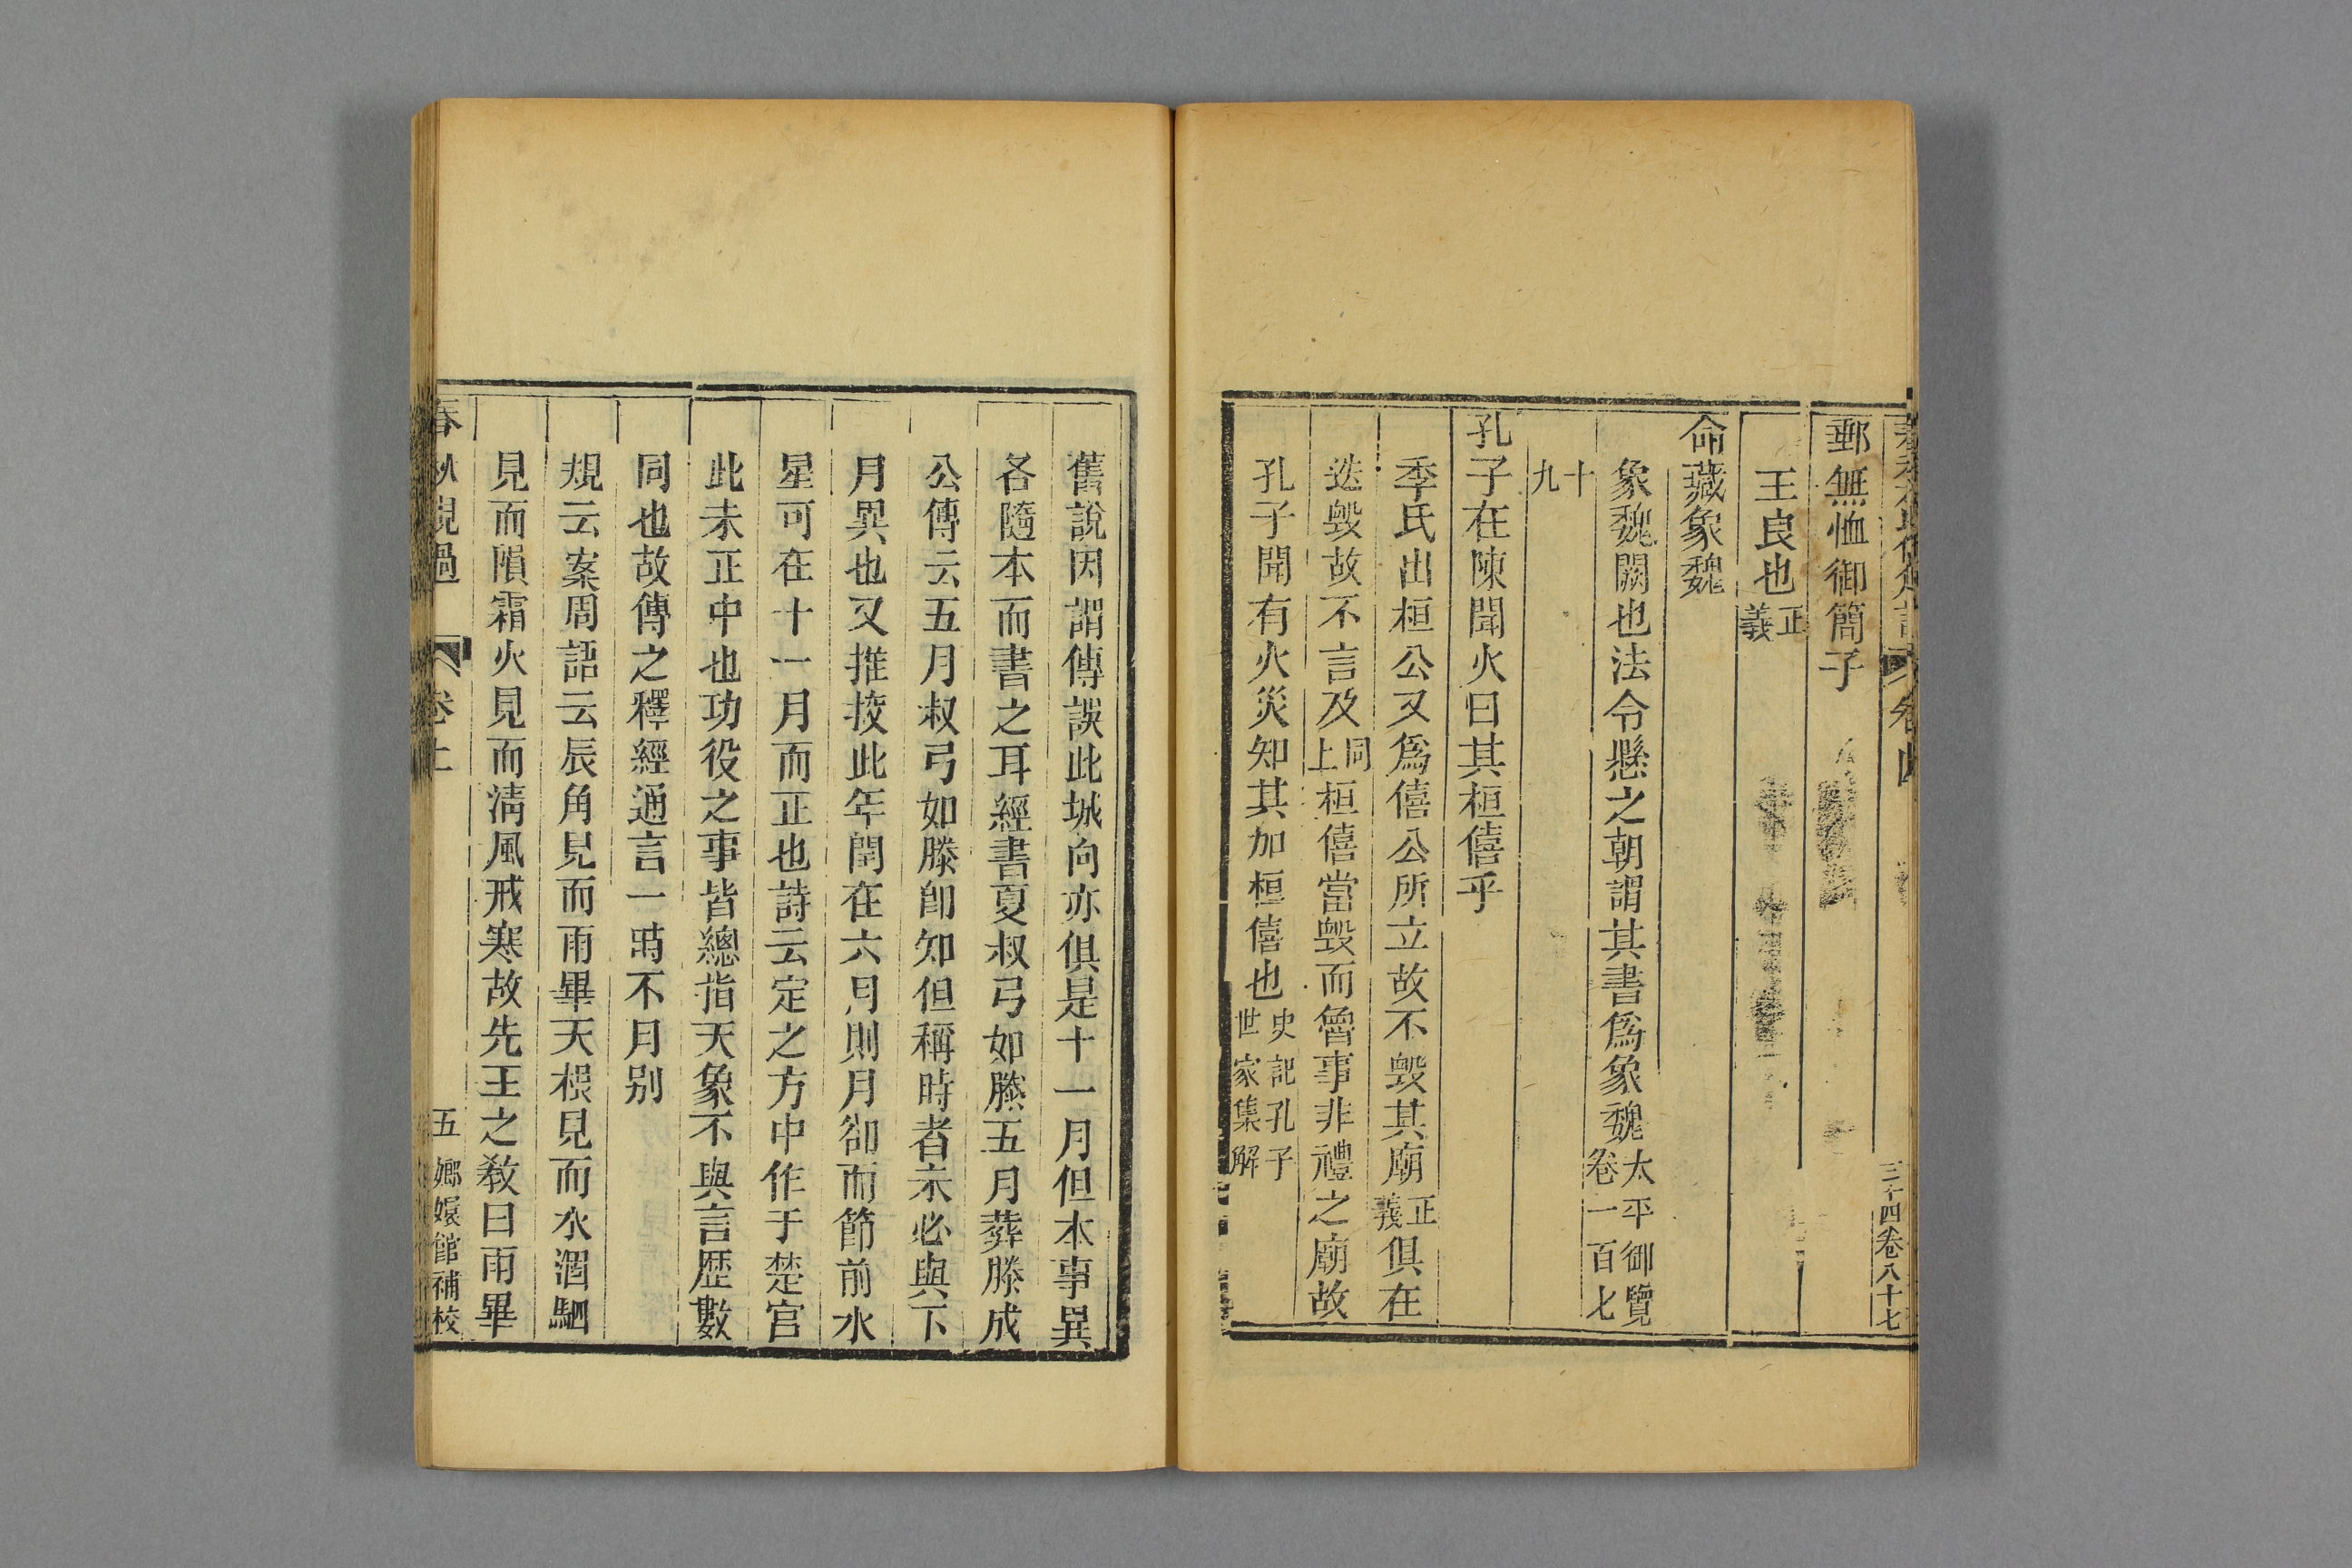 卷四
三十四卷八十七
郵無恤御簡子
王良也正義
命藏象魏
象魏闕也法令懸之朝謂其書爲象魏太平御覽卷一百七
十九
孔子在陳聞火曰其桓僖乎
季氏出桓公又爲僖公所立故不毀其廟正義俱在
迭毀故不言及同上桓僖當毀而魯事非禮之廟故
孔子聞有火災知其加桓僖也史記孔子世家集解
舊說因謂傳誤此城向亦俱是十一月但本事異
各隨本而書之耳經書夏叔弓如滕五月葬滕成
公傳云五月叔弓如滕卽知但稱時者未必與下
月異也又推挍此年閏在六月則月卻而節前水
星可在十一月而正也詩云定之方中作于楚宮
此未正中也功役之事皆總指天象不與言歷數
同也故傳之釋經通言一時不月别
規云案周語云辰角見而雨畢天根見而水涸駟
見而隕霜火見而淸風戒寒故先王之敎曰雨畢
春秋規過 卷上 五 嫏嬛館補校